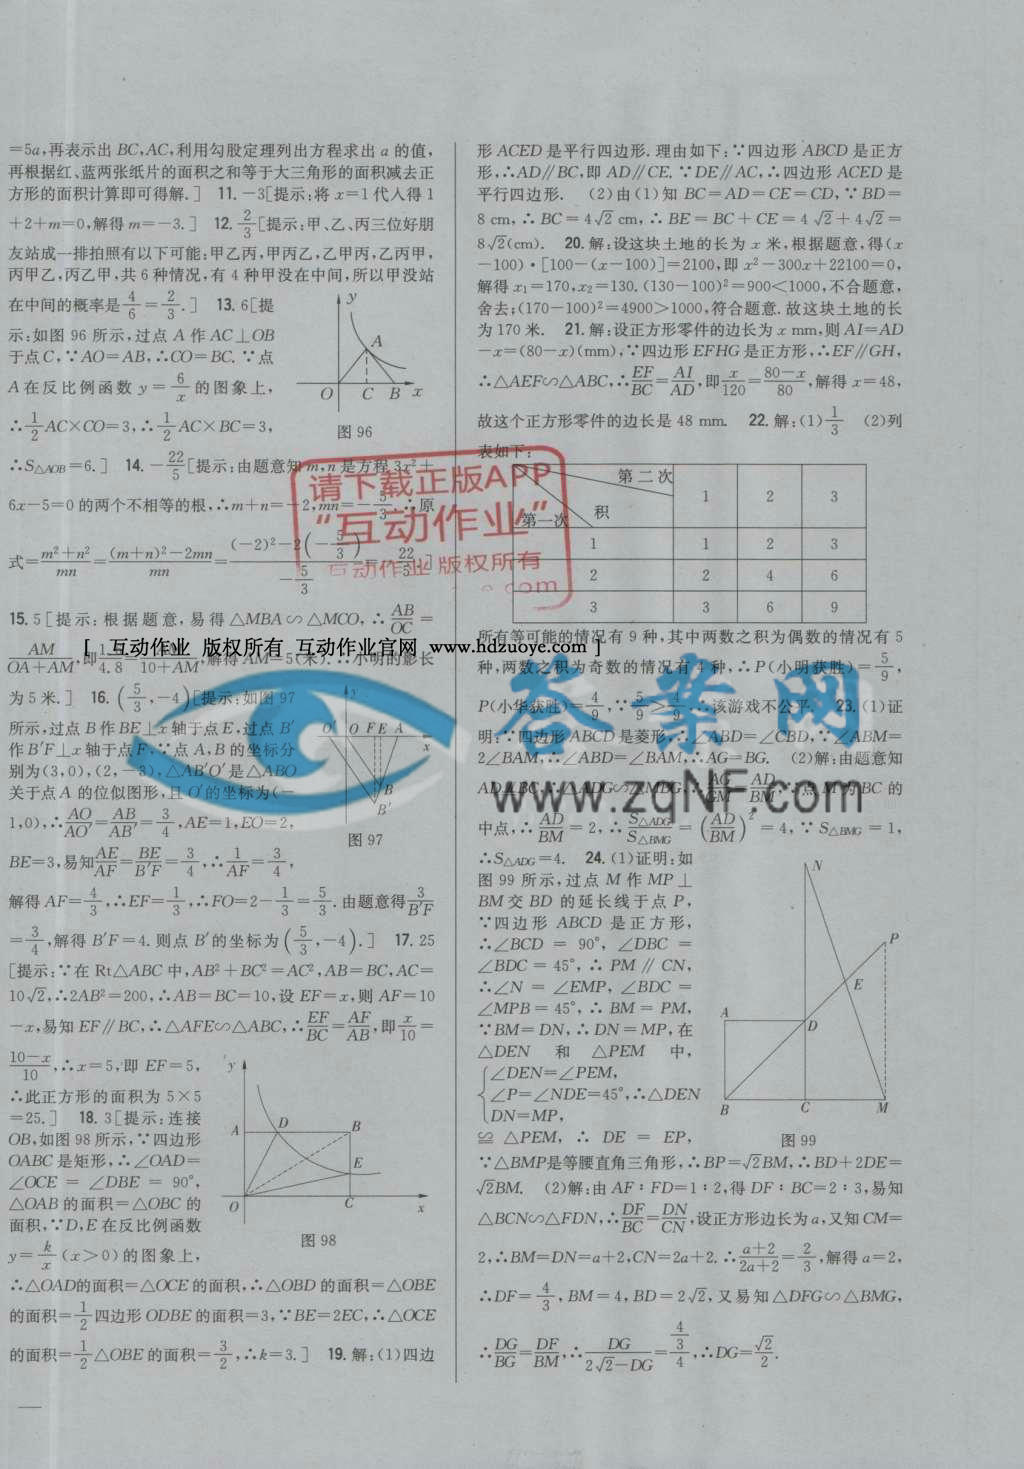 =5a,再表示出 BC,AC,利用勾股定理列出方程求出 a 的值,
再根据红、蓝两张纸片的面积之和等于大三角形的面积减去正
方形的面积计算即可得解.] 11. -3[提示:将 x=1 代人得 1
+2+m=0,解得 m=-3.] 12. 2/3[提示:甲、乙、丙三位好朋
友站成一排拍照有以下可能:甲乙丙,甲丙乙,乙甲丙,乙丙甲,
丙甲乙,丙乙甲,共 6 种情况,有 4 种甲没在中间,所以甲没站
在中间的概率是 4/6 = 2/3.] 13. 6[提
示:如图 96 所示,过点 A 作 AC⊥OB
于点 C,∵AO=AB,∴CO=BC.∵点
A 在反比例函数 y=6/x 的图象上,
∴1/2 AC×CO=3,∴1/2 AC×BC=3,
∴S△AOB=6.] 14. -22/5[提示:由题意知 m,n 是方程 3x²+
6x-5=0 的两个不相等的根,∴m+n=-2,mn=-5/3.∴原
式=(m²+n²)/mn=((m+n)²-2mn)/mn=((-2)²-2(-5/3))/(-5/3)=-22/5.]
15. 5[提示:根据题意,易得△MBA∽△MCO,∴AB/OC=
AM/(OA+AM),即 /4.8= /(10+AM),解得 AM=5(米).∴小明的影长
为 5 米.] 16. (5/3,-4)[提示:如图 97
所示,过点 B 作 BE⊥x 轴于点 E,过点 B′
作 B′F⊥x 轴于点 F,∵点 A,B 的坐标分
别为(3,0),(2,-3),△AB′O′是△ABO
关于点 A 的位似图形,且 O′的坐标为(-
1,0),∴AO/AO′=AB/AB′=3/4,AE=1,EO=2,
BE=3,易知AE/AF=BE/B′F=3/4,∴1/AF=3/4,
解得 AF=4/3,∴EF=1/3,∴FO=2-1/3=5/3.由题意得3/B′F
=3/4,解得 B′F=4.则点 B′的坐标为(5/3,-4).] 17. 25
[提示:∵在 Rt△ABC 中,AB²+BC²=AC²,AB=BC,AC=
10√2,∴2AB²=200,∴AB=BC=10,设 EF=x,则 AF=10
-x,易知 EF∥BC,∴△AFE∽△ABC,∴EF/BC=AF/AB,即x/10=
(10-x)/10,∴x=5,即 EF=5,
∴此正方形的面积为 5×5
=25.] 18. 3[提示:连接
OB,如图 98 所示,∵四边形
OABC 是矩形,∴∠OAD=
∠OCE=∠DBE=90°,
△OAB 的面积=△OBC 的
面积,∵D,E 在反比例函数
y=k/x(x>0)的图象上,
∴△OAD的面积=△OCE 的面积,∴△OBD 的面积=△OBE
的面积=1/2四边形 ODBE 的面积=3,∵BE=2EC,∴△OCE
的面积=1/2△OBE 的面积=3/2,∴k=3.] 19. 解:(1)四边
y
A
O C B x
图 96
y
O′ O F E A x
B
B′
图 97
y
A D B
E
O C x
图 98
形 ACED 是平行四边形.理由如下:∵四边形 ABCD 是正方
形,∴AD∥BC,即 AD∥CE.∵DE∥AC,∴四边形 ACED 是
平行四边形. (2)由(1)知 BC=AD=CE=CD,∵BD=
8 cm,∴BC=4√2 cm,∴BE=BC+CE=4√2+4√2=
8√2(cm). 20. 解:设这块土地的长为 x 米,根据题意,得(x
-100)·[100-(x-100)]=2100,即 x²-300x+22100=0,
解得 x₁=170,x₂=130.(130-100)²=900<1000,不合题意,
舍去;(170-100)²=4900>1000,符合题意.故这块土地的长
为 170 米. 21. 解:设正方形零件的边长为 x mm,则 AI=AD
-x=(80-x)(mm),∵四边形 EFHG 是正方形,∴EF∥GH,
∴△AEF∽△ABC,∴EF/BC=AI/AD,即x/120=(80-x)/80,解得 x=48,
故这个正方形零件的边长是 48 mm. 22. 解:(1)1/3 (2)列
表如下:
第二次 积 第一次 1 2 3
1 1 2 3
2 2 4 6
3 3 6 9
所有等可能的情况有 9 种,其中两数之积为偶数的情况有 5
种,两数之积为奇数的情况有 4 种,∴P(小明获胜)=5/9,
P(小华获胜)=4/9,∵5/9>4/9,∴该游戏不公平. 23. (1)证
明:∵四边形 ABCD 是菱形,∴∠ABD=∠CBD,∵∠ABM=
2∠BAM,∴∠ABD=∠BAM,∴AG=BG. (2)解:由题意知
AD∥BC,∴△ADG∽△MBG,∴AG/GM=AD/BM,∵点 M 为 BC 的
中点,∴AD/BM=2,∴S△ADG/S△BMG=(AD/BM)²=4,∵S△BMG=1,
∴S△ADG=4. 24. (1)证明:如
图 99 所示,过点 M 作 MP⊥
BM交 BD 的延长线于点 P,
∵四边形 ABCD 是正方形,
∴∠BCD=90°,∠DBC=
∠BDC=45°,∴PM∥CN,
∴∠N=∠EMP,∠BDC=
∠MPB=45°,∴BM=PM,
∵BM=DN,∴DN=MP,在
△DEN 和 △PEM 中,
∠DEN=∠PEM,
∠P=∠NDE=45°,∴△DEN
DN=MP,
≌△PEM,∴DE=EP,
∵△BMP是等腰直角三角形,∴BP=√2BM,∴BD+2DE=
√2BM. (2)解:由 AF∶FD=1∶2,得 DF∶BC=2∶3,易知
△BCN∽△FDN,∴DF/BC=DN/CN,设正方形边长为 a,又知 CM=
2,∴BM=DN=a+2,CN=2a+2.∴(a+2)/(2a+2)=2/3,解得 a=2,
∴DF=4/3,BM=4,BD=2√2,又易知△DFG∽△BMG,
∴DG/BG=DF/BM,∴DG/(2√2-DG)=(4/3)/4,∴DG=√2/2.
N
P
E
A D
B C M
图 99
请下载正版APP
“互动作业”
互动作业 版权所有
[ 互动作业 版权所有 互动作业官网 www.hdzuoye.com ]
答案网
www.zqNF.com